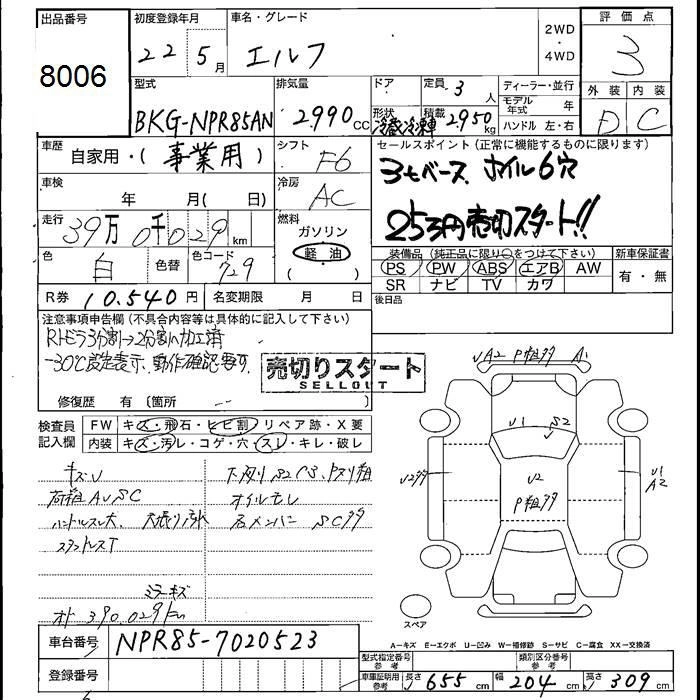 出品番号
8006
初度登録年月
22年5月
車名・グレード
エルフ
2WD
・
4WD
評価点
3
型式
BKG-NPR85AN
排気量
2990cc
ドア
形状
冷蔵冷凍車
定員 3人
積載 2950kg
ディーラー・並行
モデル年式 年
ハンドル 左・右
外装 内装
D C
車歴
自家用・(事業用)
シフト
F6
セールスポイント(正常に機能するものに限ります)
3tベース ホイル6穴
253万円売切スタート!!
車検
年 月( 日)
冷房
AC
走行
39万0千029km
燃料
ガソリン
軽油
( )
色
白
色替
色コード
729
装備品(純正品に限り○をつけて下さい)
PS PW ABS エアB AW
SR ナビ TV カワ
新車保証書
有・無
R券 10,540円
名変期限 月 日
後日品
注意事項申告欄(不具合内容等は具体的に記入して下さい)
Rトビラ3分割→2分割へ加工済
-30℃設定表示、動作確認要す
売切りスタート
SELLOUT
修復歴 有〔箇所 〕
検査員
記入欄
FW キズ・飛石・ヒビ割・リペア跡・X要
内装 キズ・汚レ・コゲ・穴・スレ・キレ・破レ
キズU
荷箱AUSC
ハンドルスレ大、
オイルモレ
ミラーキズ
オト 390,029km
UA2 P粗多 A1
U1 S2
U2
P粗多
U2多
U1
A2
スペア
A-キズ E-エクボ U-凹み W-補修跡 S-サビ C-腐食 XX-交換済
車台番号 NPR85-7020523
登録番号
型式指定番号
参考
類別区分番号
参考
車庫証明用
参考
長さ 655cm
幅 204cm
高さ 309cm